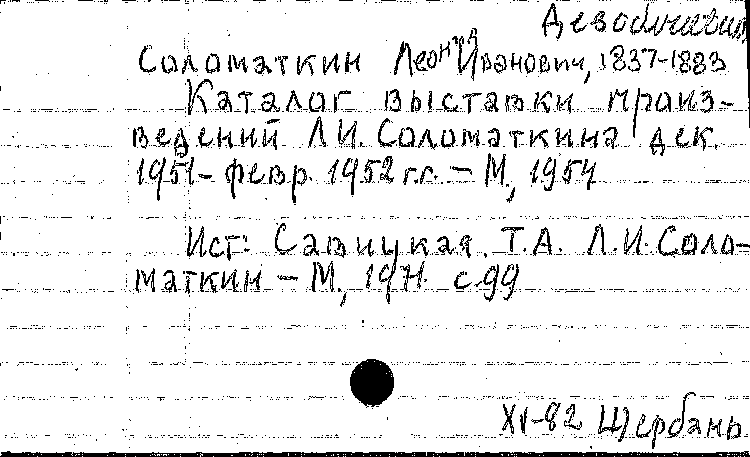 Соломаткин Леонид Иванович, 1837-1883
Каталог выставки произ-
ведений Л.И. Соломаткина дек.
1951- февр. 1952 г.г. – М., 1954
Ист: Савицкая. Т.А. Л.И. Соло-
маткин – М., 1971. с.99
XI-82 Щербань